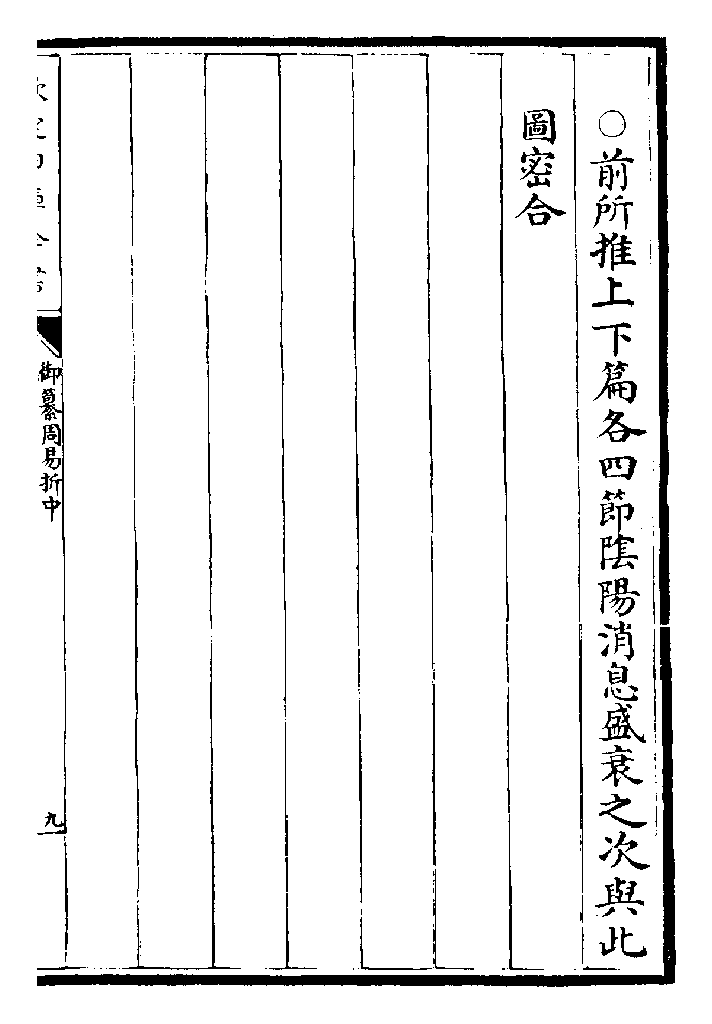 ○前所推上下篇各四節陰陽消息盛衰之次與此
圖密合
御纂周易折中
九